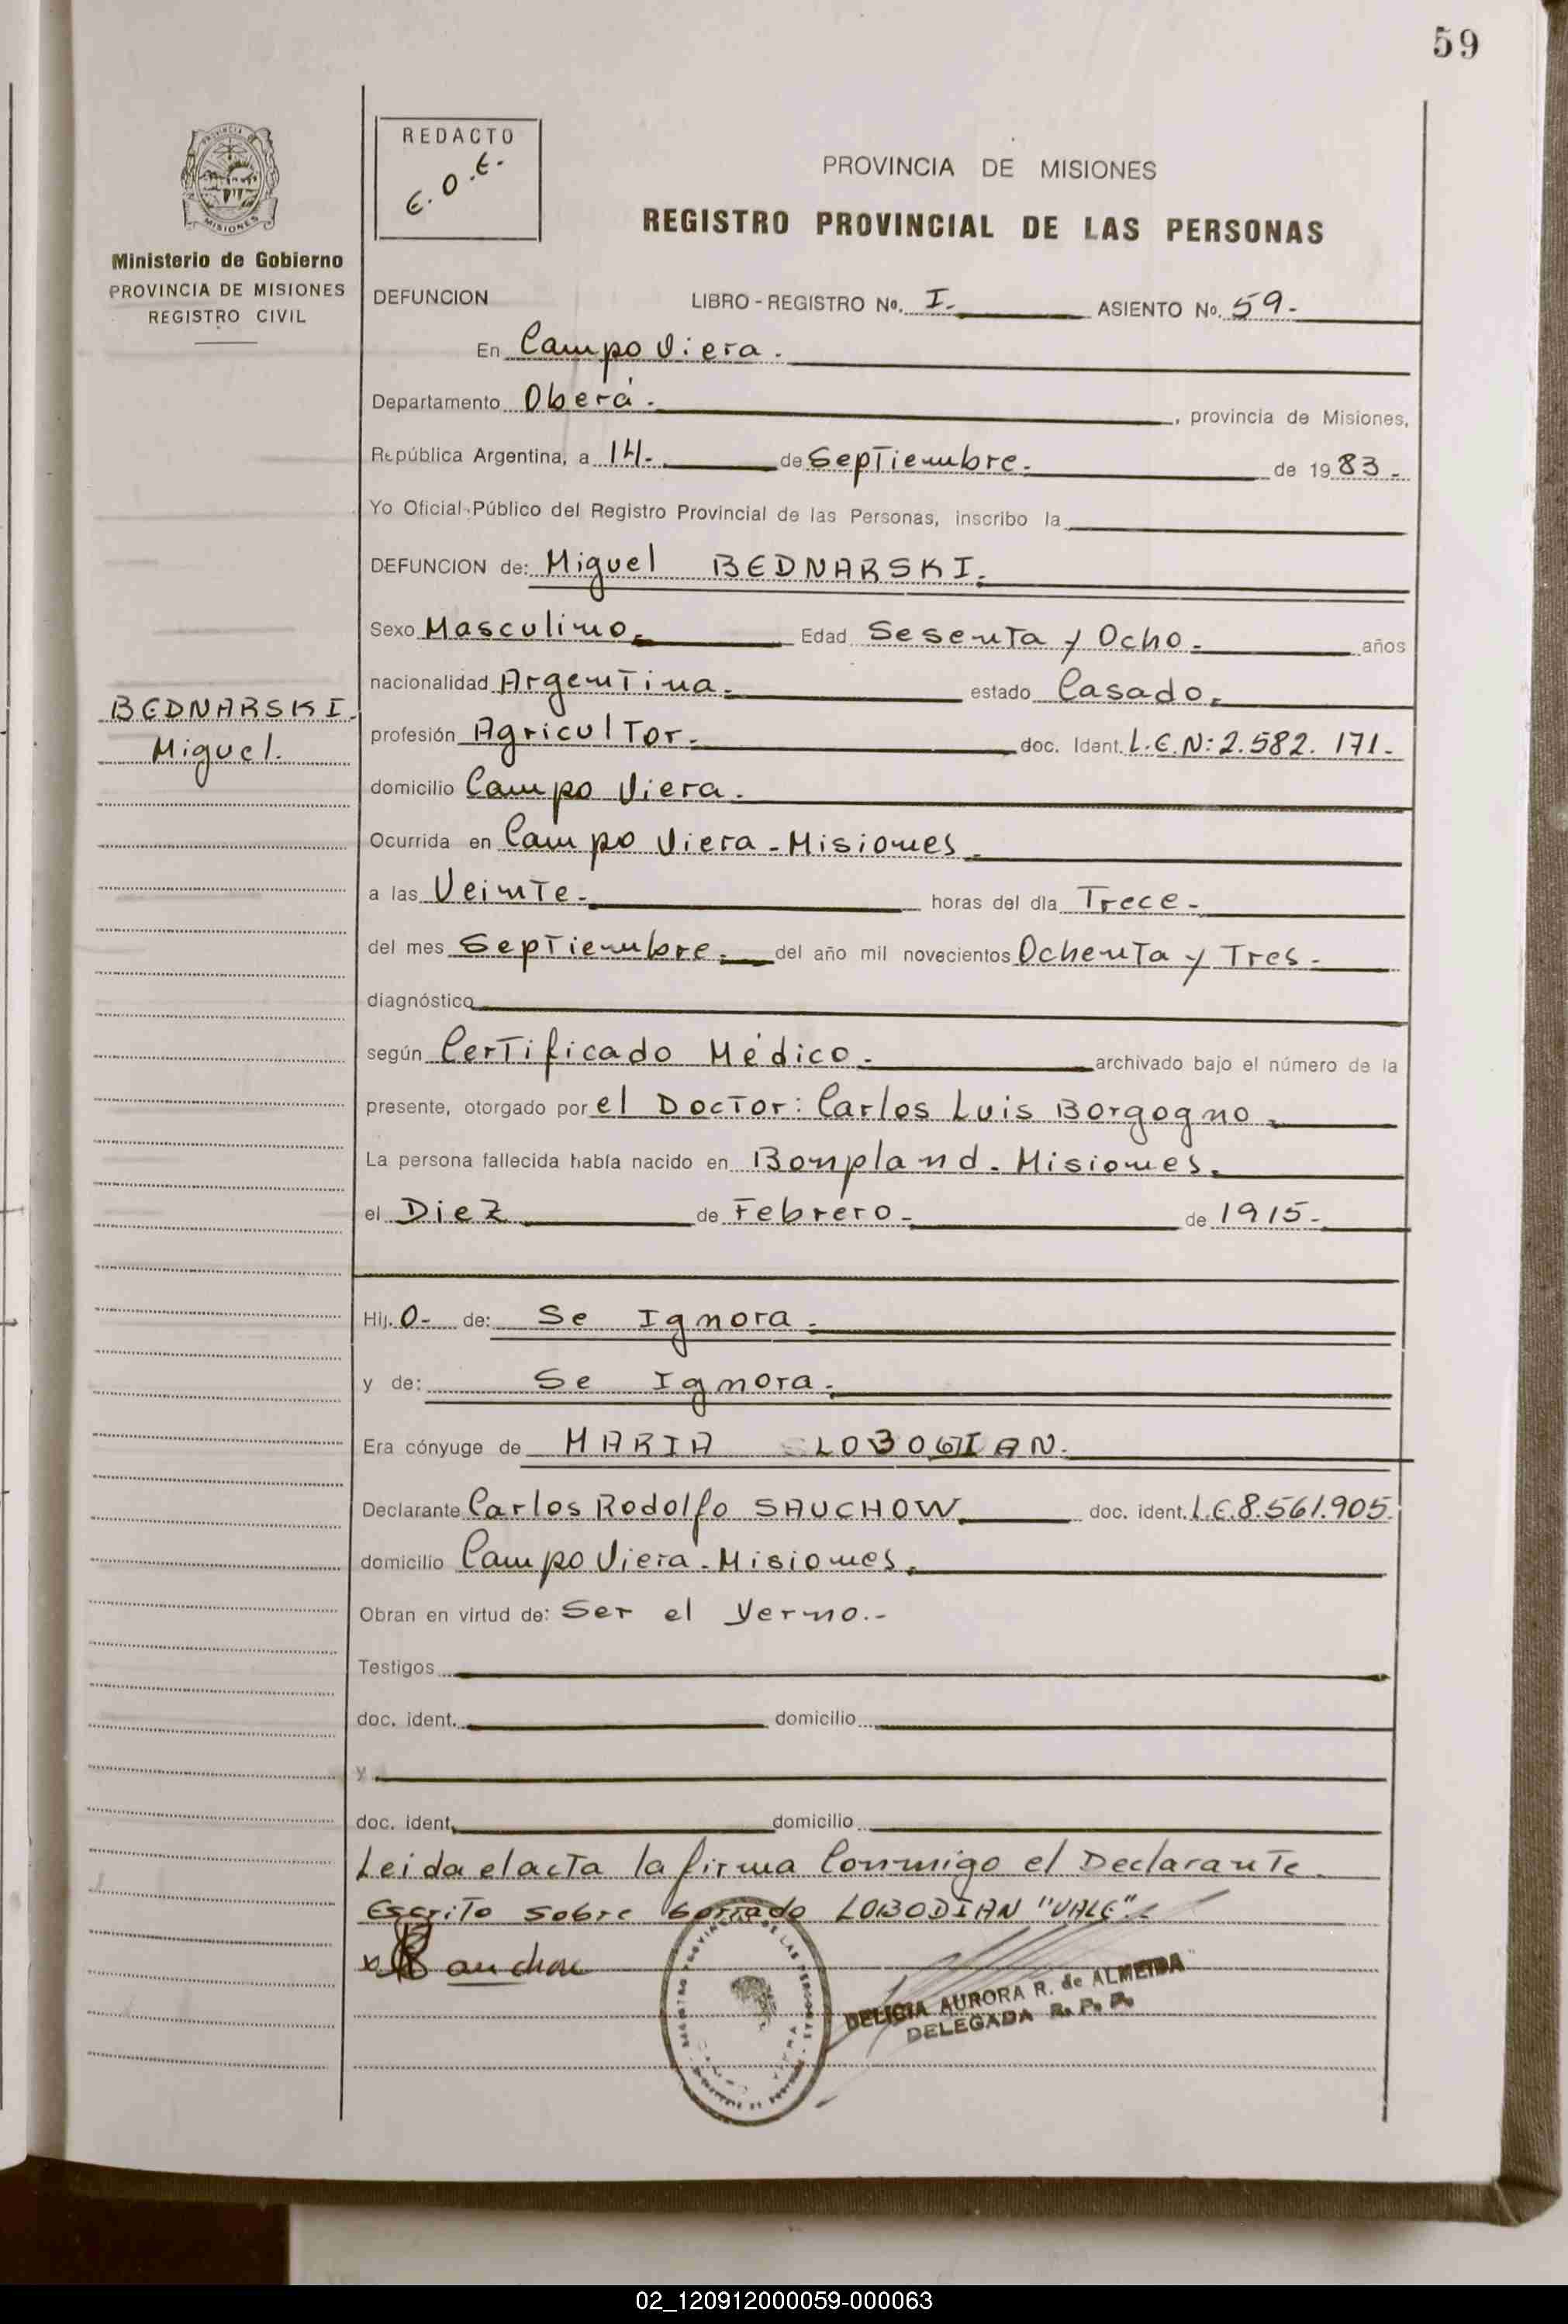 59
REDACTO
E.O.E.
PROVINCIA DE
MISIONES
Ministerio de Gobierno
PROVINCIA DE MISIONES
REGISTRO CIVIL
PROVINCIA DE MISIONES
REGISTRO PROVINCIAL DE LAS PERSONAS
DEFUNCION LIBRO - REGISTRO No. I. ASIENTO No. 59.-
En Campo Viera.
Departamento Oberá. , provincia de Misiones,
República Argentina, a 14. de Septiembre. de 1983.-
Yo Oficial Público del Registro Provincial de las Personas, inscribo la
DEFUNCION de: Miguel BEDNARSKI.
Sexo Masculino. Edad Sesenta y Ocho. años
nacionalidad Argentina. estado Casado.
BEDNARSKI.
Miguel.
profesión Agricultor. doc. Ident. L.E.N: 2.582.171.-
domicilio Campo Viera.
Ocurrida en Campo Viera - Misiones
a las Veinte. horas del día Trece-
del mes Septiembre. del año mil novecientos Ochenta y Tres.
diagnóstico
según Certificado Médico. archivado bajo el número de la
presente, otorgado por el Doctor: Carlos Luis Borgogno.
La persona fallecida había nacido en Bonpland. Misiones.
el Diez de Febrero- de 1915-
Hij. o- de: Se Ignora.
y de: Se Ignora.
Era cónyuge de MARIA LOBODIAN.
Declarante Carlos Rodolfo SAUCHOW. doc. ident. L.E. 8.561.905.
domicilio Campo Viera - Misiones.
Obran en virtud de: Ser el Yerno.-
Testigos
doc. ident. domicilio
y
doc. ident. domicilio
Leida el acta la firma Conmigo el Declarante.
Escrito sobre borrado LOBODIAN "VALE".
DELICIA AURORA R. de ALMEIDA
DELEGADA R. P. P.
02_120912000059-000063